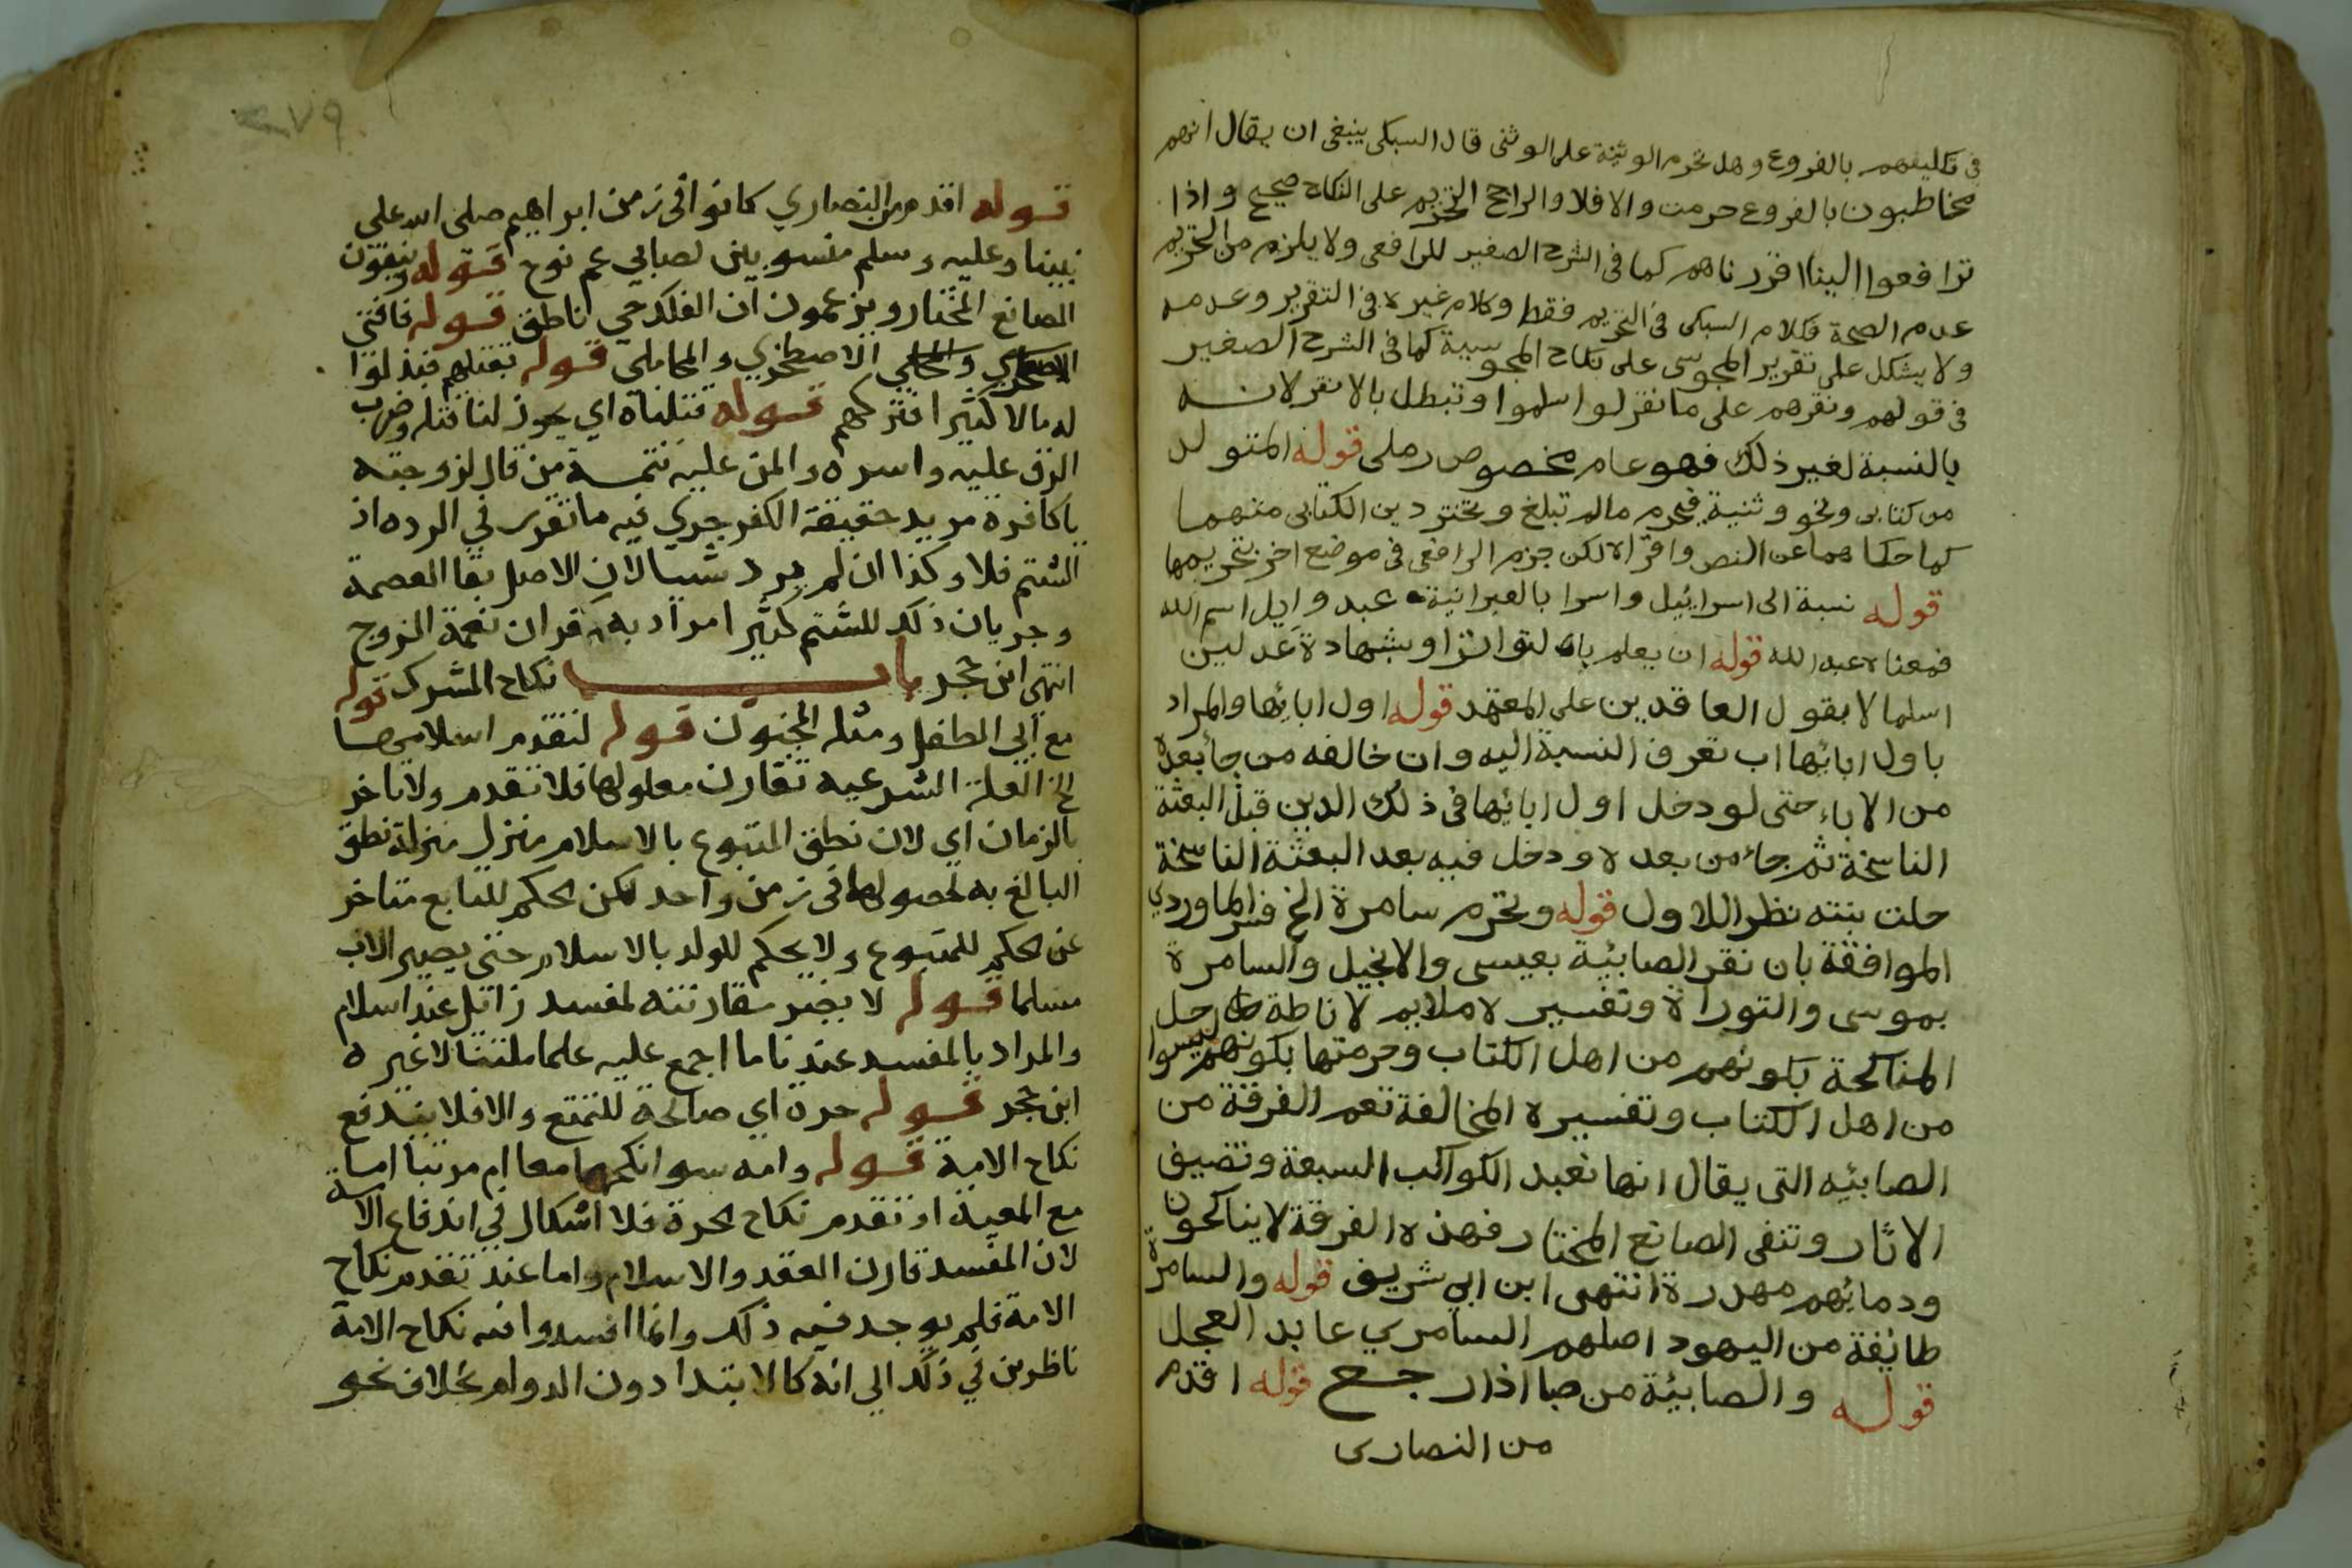 في تكليفهم بالفروع وهل تحرم الوثنية على الوثنى قال السبكى ينبغى ان يقال انهم
مخاطبون بالفروع حرمت والا فلا والراجح التحريم على النكاح صحيح واذا
ترافعوا الينا اقررناهم كما فى الشرح الصغير للرافعى ولا يلزم من التحريم
عدم الصحة فكلام السبكى فى التحريم فقط وكلام غيره فى التقرير وعدمه
ولا يشكل على تقرير المجوسى على نكاح المجوسية كما فى الشرح الصغير
فى قولهم ونقرهم على ما نقر لو اسلموا وتبطل بالانقر لانه
بالنسبة لغير ذلك فهو عام مخصوص رملى قوله المتولد
من كتابى ونحو وثنية فيحرم مالم تبلغ وتختر دين الكتابى منهما
كما حكاهما عن النص واقراه لكن جزم الرافعى فى موضع اخر بتحريمها
قوله نسبة الى اسرائيل واسرا بالعبرانية عبد وايل اسم الله
فمعناه عبد الله قوله ان يعلم بان لتواترا وبشهادة عدلين
اسلما لا بقول العاقدين على المعتمد قوله اول ابائها والمراد
باول ابائها اب تعرف النسبة اليه وان خالفه من جا بعده
من الاباء حتى لو دخل اول ابائها فى ذلك الدين قبل البعثة
الناسخة ثم جاء من بعده ودخل فيه بعد البعثة الناسخة
حلت بنته نظرا للاول قوله وتحرم سامرة الخ فسر الماوردي
الموافقة بان نقر الصابئية بعيسى والانجيل والسامرة
بموسى والتوراة وتفسيره ملايم لاناطة حل
المناكحة بكونهم من اهل الكتاب وحرمتها بكونهم ليسوا
من اهل الكتاب وتفسيره المخالفة تعم الفرقة من
الصابئيه التى يقال انها تعبد الكواكب السبعة وتضيف
الاثار وتنفى الصانع المختار فهذه الفرقة لا يناكحون
ودمائهم مهدرة انتهى ابن ابي شريف قوله والسامرة
طائفة من اليهود اصلهم السامري عابد العجل
قوله والصابئة من صبا اذا رجع قوله اقدم
من النصارى
قوله اقدم من النصاري كانوا فى زمن ابراهيم صلى الله على
نبينا وعليه وسلم منسوبين لصابي عم نوح قوله وينفون
الصانع المختار ويزعمون ان الفلك حي ناطق قوله فافتى
الاصطخري والمحاملى قوله بقتلهم فبذلوا
له مالا كثيرا فتركهم قوله قتلناه اي يجوز لنا قتله وضرب
الرق عليه واسره والمن عليه تتمـة من قال لزوجته
ياكافرة مريد حقيقة الكفر جري فيه ما تقرر في الرده اذ
الشتم فلا وكذا ان لم يرد شيا لان الاصل بقا العصمة
وجريان ذلك للشتم كثيرا مرادبه كفران نعمة الزوج
انتهى ابن حجر باب نكاح المشرك قوله
مع ابي الطفل ومثله المجنون قوله لتقدم اسلامها
الخ العلة الشرعيه تقارن معلولها فلا تقدم ولا تاخر
بالزمان اي لان نطق المتبوع بالاسلام منزل منزلة نطق
البالغ به لحصولها في زمن واحد لكن الحكم للتابع متاخر
عن الحكم للمتبوع ولا يحكم للولد بالاسلام حتى يصير الاب
مسلما قوله لا يضر مقارنته لمفسد زائل عند اسلام
والمراد بالمفسد عندنا ما اجمع عليه علما ملتنا لا غيره
ابن حجر قوله حرة اي صالحة للتمتع والا فلا يندفع
نكاح الامة قوله وامه سوا نكحهما معا ام مرتبا اما
مع المعية او تقدم نكاح الحرة فلا اشكال في اندفاع الامة
لان المفسد قارن العقد والاسلام واما عند تقدم نكاح
الامة فلم يوجد فيه ذلك وانما افسدوا فيه نكاح الامة
ناظرين في ذلك الى انه كالابتدا دون الدوام بخلاف نحو